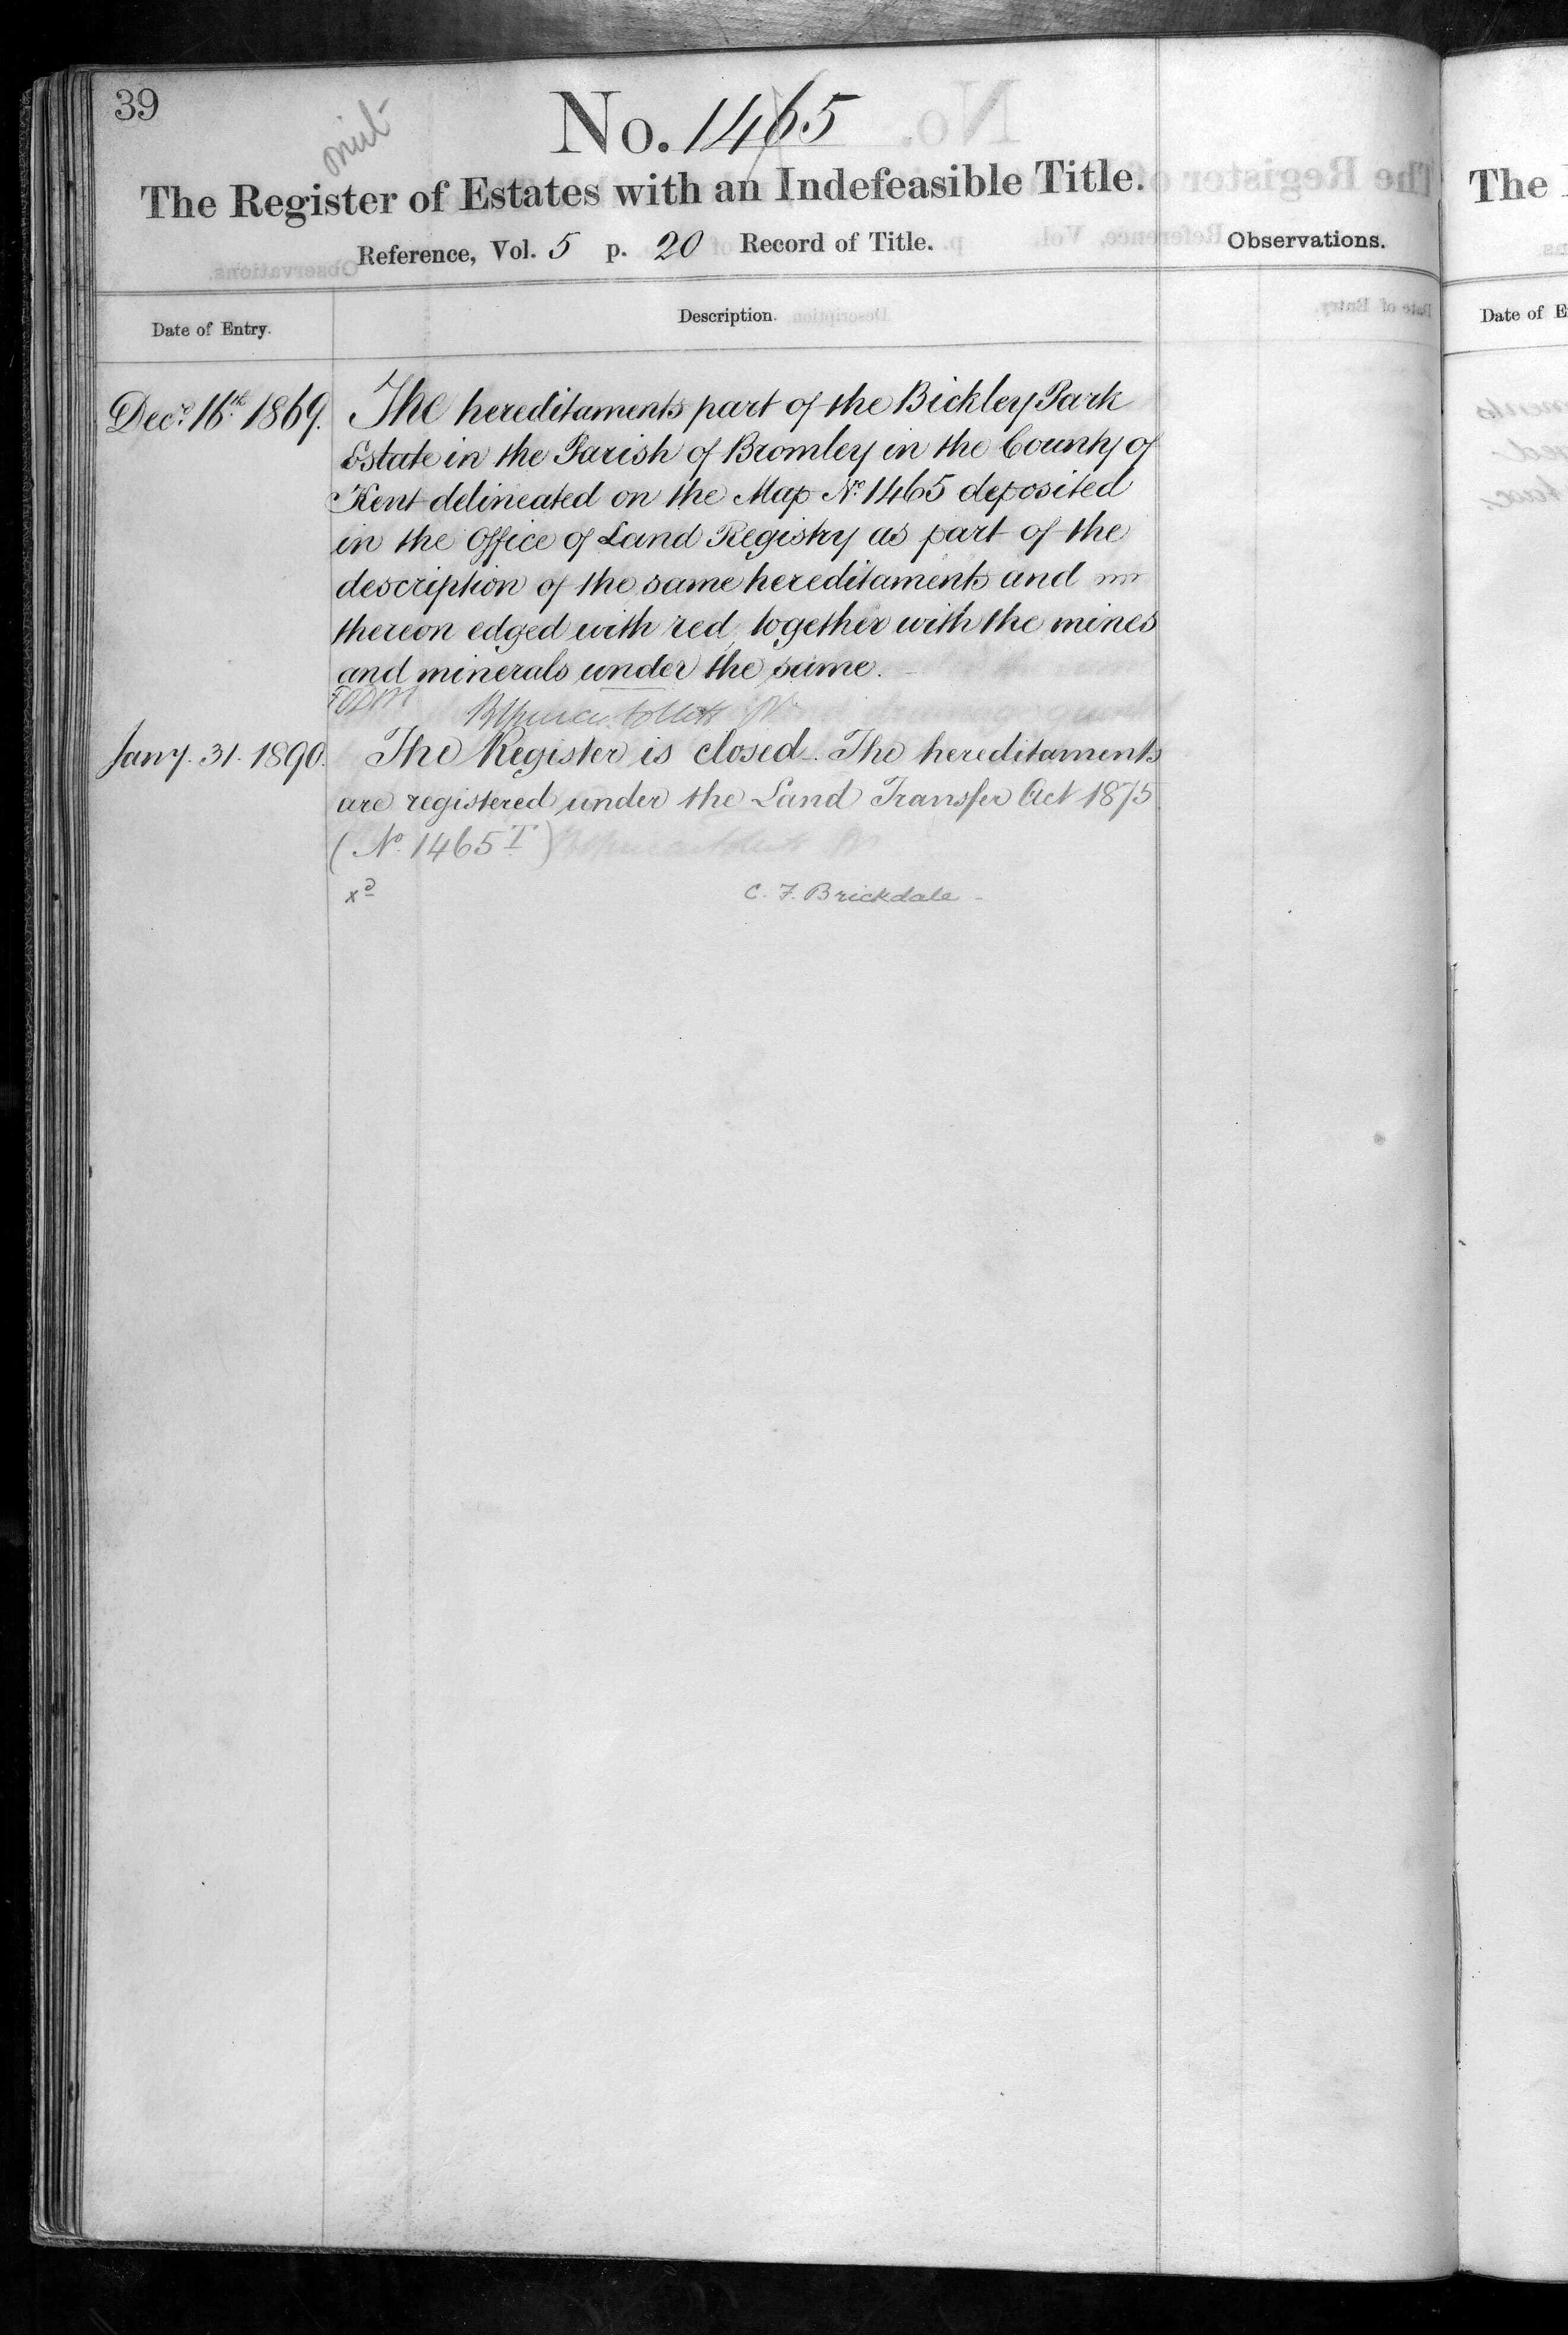 39
No. 1465
The Register of Estates with an Indefeasible Title.
Reference, Vol. 5 p. 20 Record of Title.
Observations.
Date of Entry.
Description.
Decr. 16th. 1869. The hereditaments part of the Bickley Park
Estate in the Parish of Bromley in the County of
Kent delineated on the Map No. 1465 deposited
in the Office of Land Registry as part of the
description of the same hereditaments and
thereon edged with red, together with the mines
and minerals under the same.
Jany. 31. 1890. The Register is closed. The hereditaments
are registered under the Land Transfer Act 1875
(No. 1465 T.)
xd
C. F. Brickdale
The
Date of E